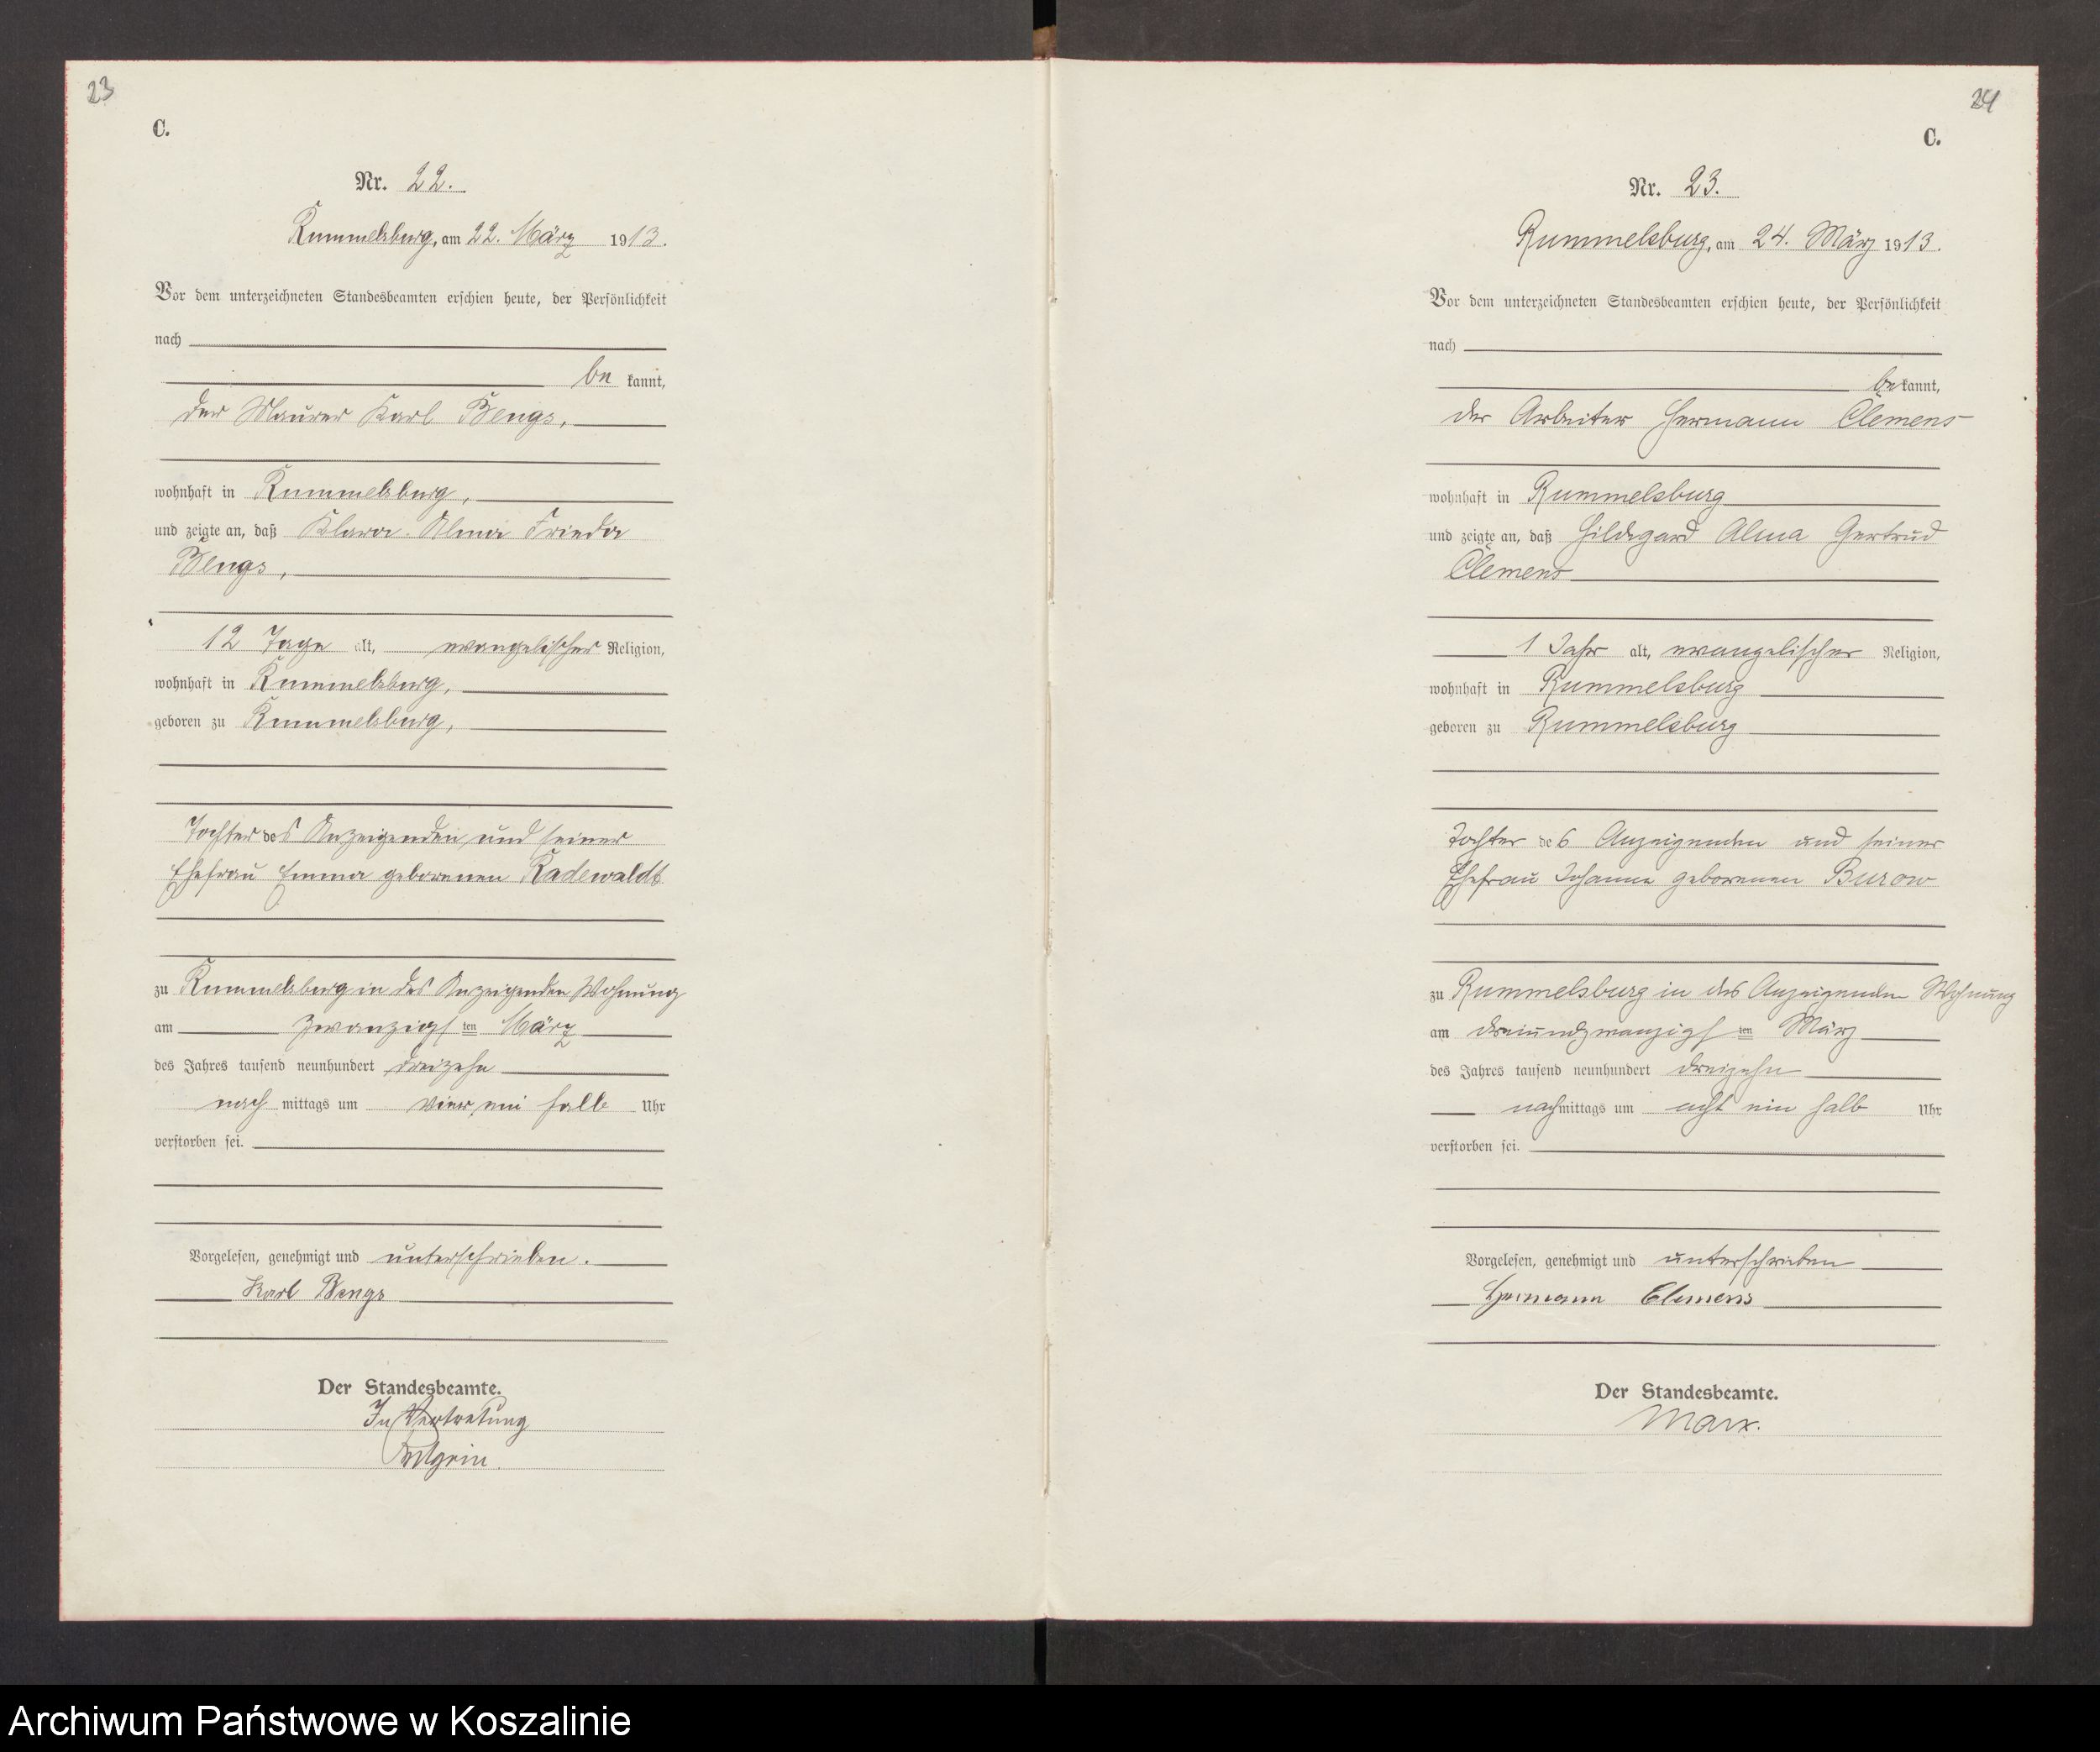 23
C.
Nr. 22.
Rummelsburg, am 22. März 1913.
Vor dem unterzeichneten Standesbeamten erschien heute, der Persönlichkeit
nach
be kannt,
der Maurer Karl Bengs,
wohnhaft in Rummelsburg,
und zeigte an, daß Klara Alma Frieda
Bengs,
12 Tage alt, evangelischer Religion,
wohnhaft in Rummelsburg,
geboren zu Rummelsburg,
Tochter des Anzeigenden und seiner
Ehefrau Emma geborenen Radewaldt
zu Rummelsburg in des Anzeigenden Wohnung
am zwanzigsten März
des Jahres tausend neunhundert dreizehn
nach mittags um vier ein halb Uhr
verstorben sei.
Vorgelesen, genehmigt und unterschrieben.
Karl Bengs
Der Standesbeamte.
In Vertretung
24
C.
Nr. 23.
Rummelsburg, am 24. März 1913.
Vor dem unterzeichneten Standesbeamten erschien heute, der Persönlichkeit
nach
be kannt,
der Arbeiter Hermann Clemens
wohnhaft in Rummelsburg
und zeigte an, daß Hildegard Alma Gertrud
Clemens
1 Jahr alt, evangelischer Religion,
wohnhaft in Rummelsburg
geboren zu Rummelsburg
Tochter des Anzeigenden und seiner
Ehefrau Johanna geborenen Burow
zu Rummelsburg in des Anzeigenden Wohnung
am dreiundzwanzigsten März
des Jahres tausend neunhundert dreizehn
nachmittags um acht ein halb Uhr
verstorben sei.
Vorgelesen, genehmigt und unterschrieben
Hermann Clemens
Der Standesbeamte.
Marx.
Archiwum Państwowe w Koszalinie